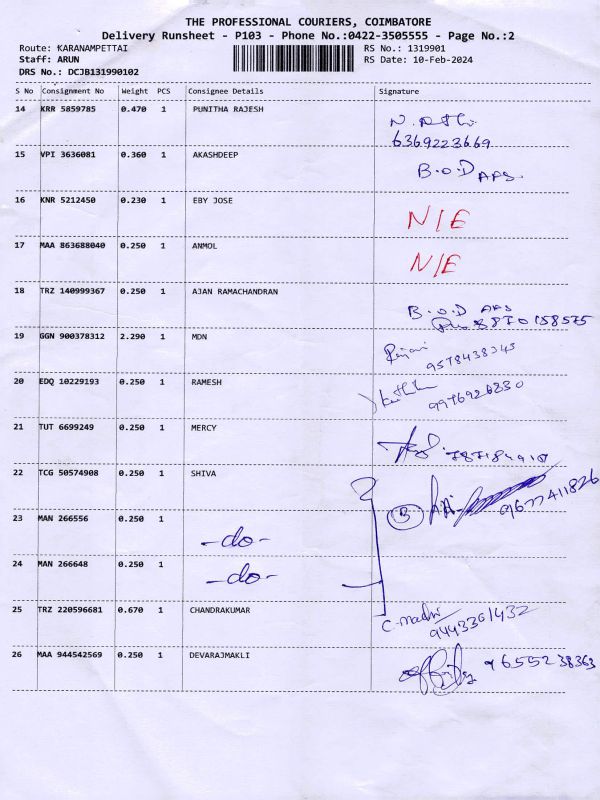 THE PROFESSIONAL COURIERS, COIMBATORE
Delivery Runsheet - P103 - Phone No.:0422-3505555 - Page No.:2
Route: KARANAMPETTAI RS No.: 1319901
Staff: ARUN RS Date: 10-Feb-2024
DRS No.: DCJB131990102
S No Consignment No Weight PCS Consignee Details Signature
14 KRR 5859785 0.470 1 PUNITHA RAJESH
6369223669
15 VPI 3636081 0.360 1 AKASHDEEP B.O.D APS.
16 KNR 5212450 0.230 1 EBY JOSE N/E
17 MAA 863688040 0.250 1 ANMOL N/E
18 TRZ 140999367 0.250 1 AJAN RAMACHANDRAN B.O.D APS
8870158575
19 GGN 900378312 2.290 1 MDN
9578438345
20 EDQ 10229193 0.250 1 RAMESH
9976926230
21 TUT 6699249 0.250 1 MERCY
22 TCG 50574908 0.250 1 SHIVA 3 9677411826
23 MAN 266556 0.250 1 -do-
24 MAN 266648 0.250 1 -do-
25 TRZ 220596681 0.670 1 CHANDRAKUMAR
9443361432
26 MAA 944542569 0.250 1 DEVARAJMAKLI 9655238363